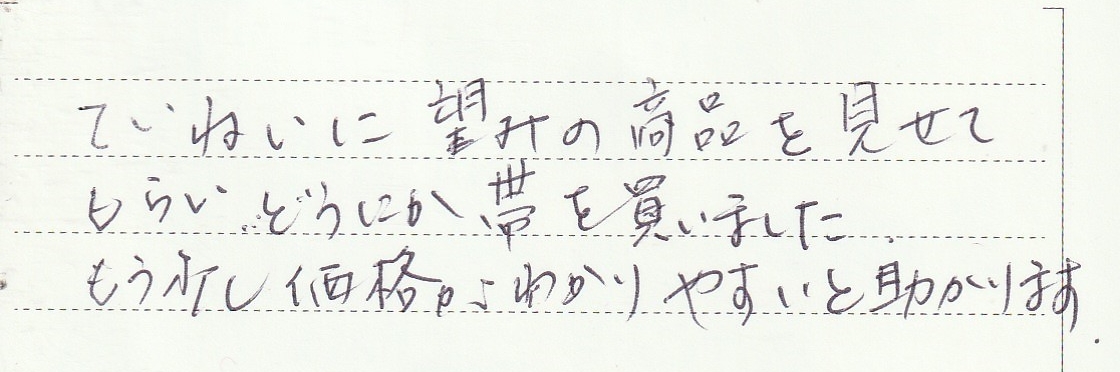 ていねいに望みの商品を見せて
もらい、どうにか帯を買いました。
もう少し価格がわかりやすいと助かります。